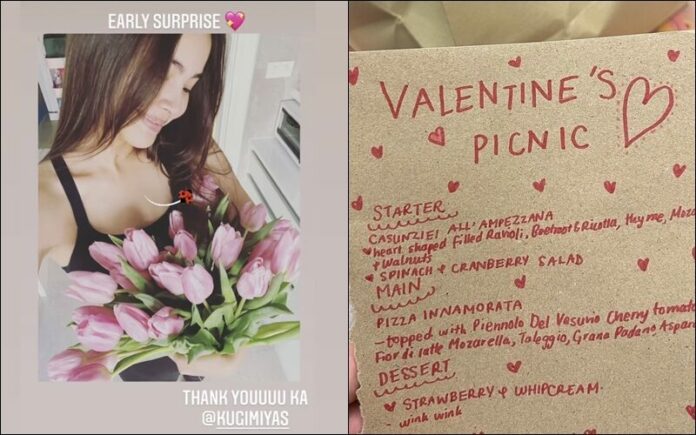 EARLY SURPRISE
THANK YOUUUU KA
@KUGIMIYAS
VALENTINE'S
PICNIC
STARTER
CASUNZIEI ALL'AMPEZZANA
heart shaped filled Ravioli, Beetroot & Ricotta, thyme,
& walnuts
SPINACH & CRANBERRY SALAD
MAIN
PIZZA INNAMORATA
- topped with Piennolo Del Vesuvio Cherry tomato
Fior di latte Mozarella, Taleggio, Grana Padano
DESSERT
STRAWBERRY & WHIPCREAM.
- wink wink